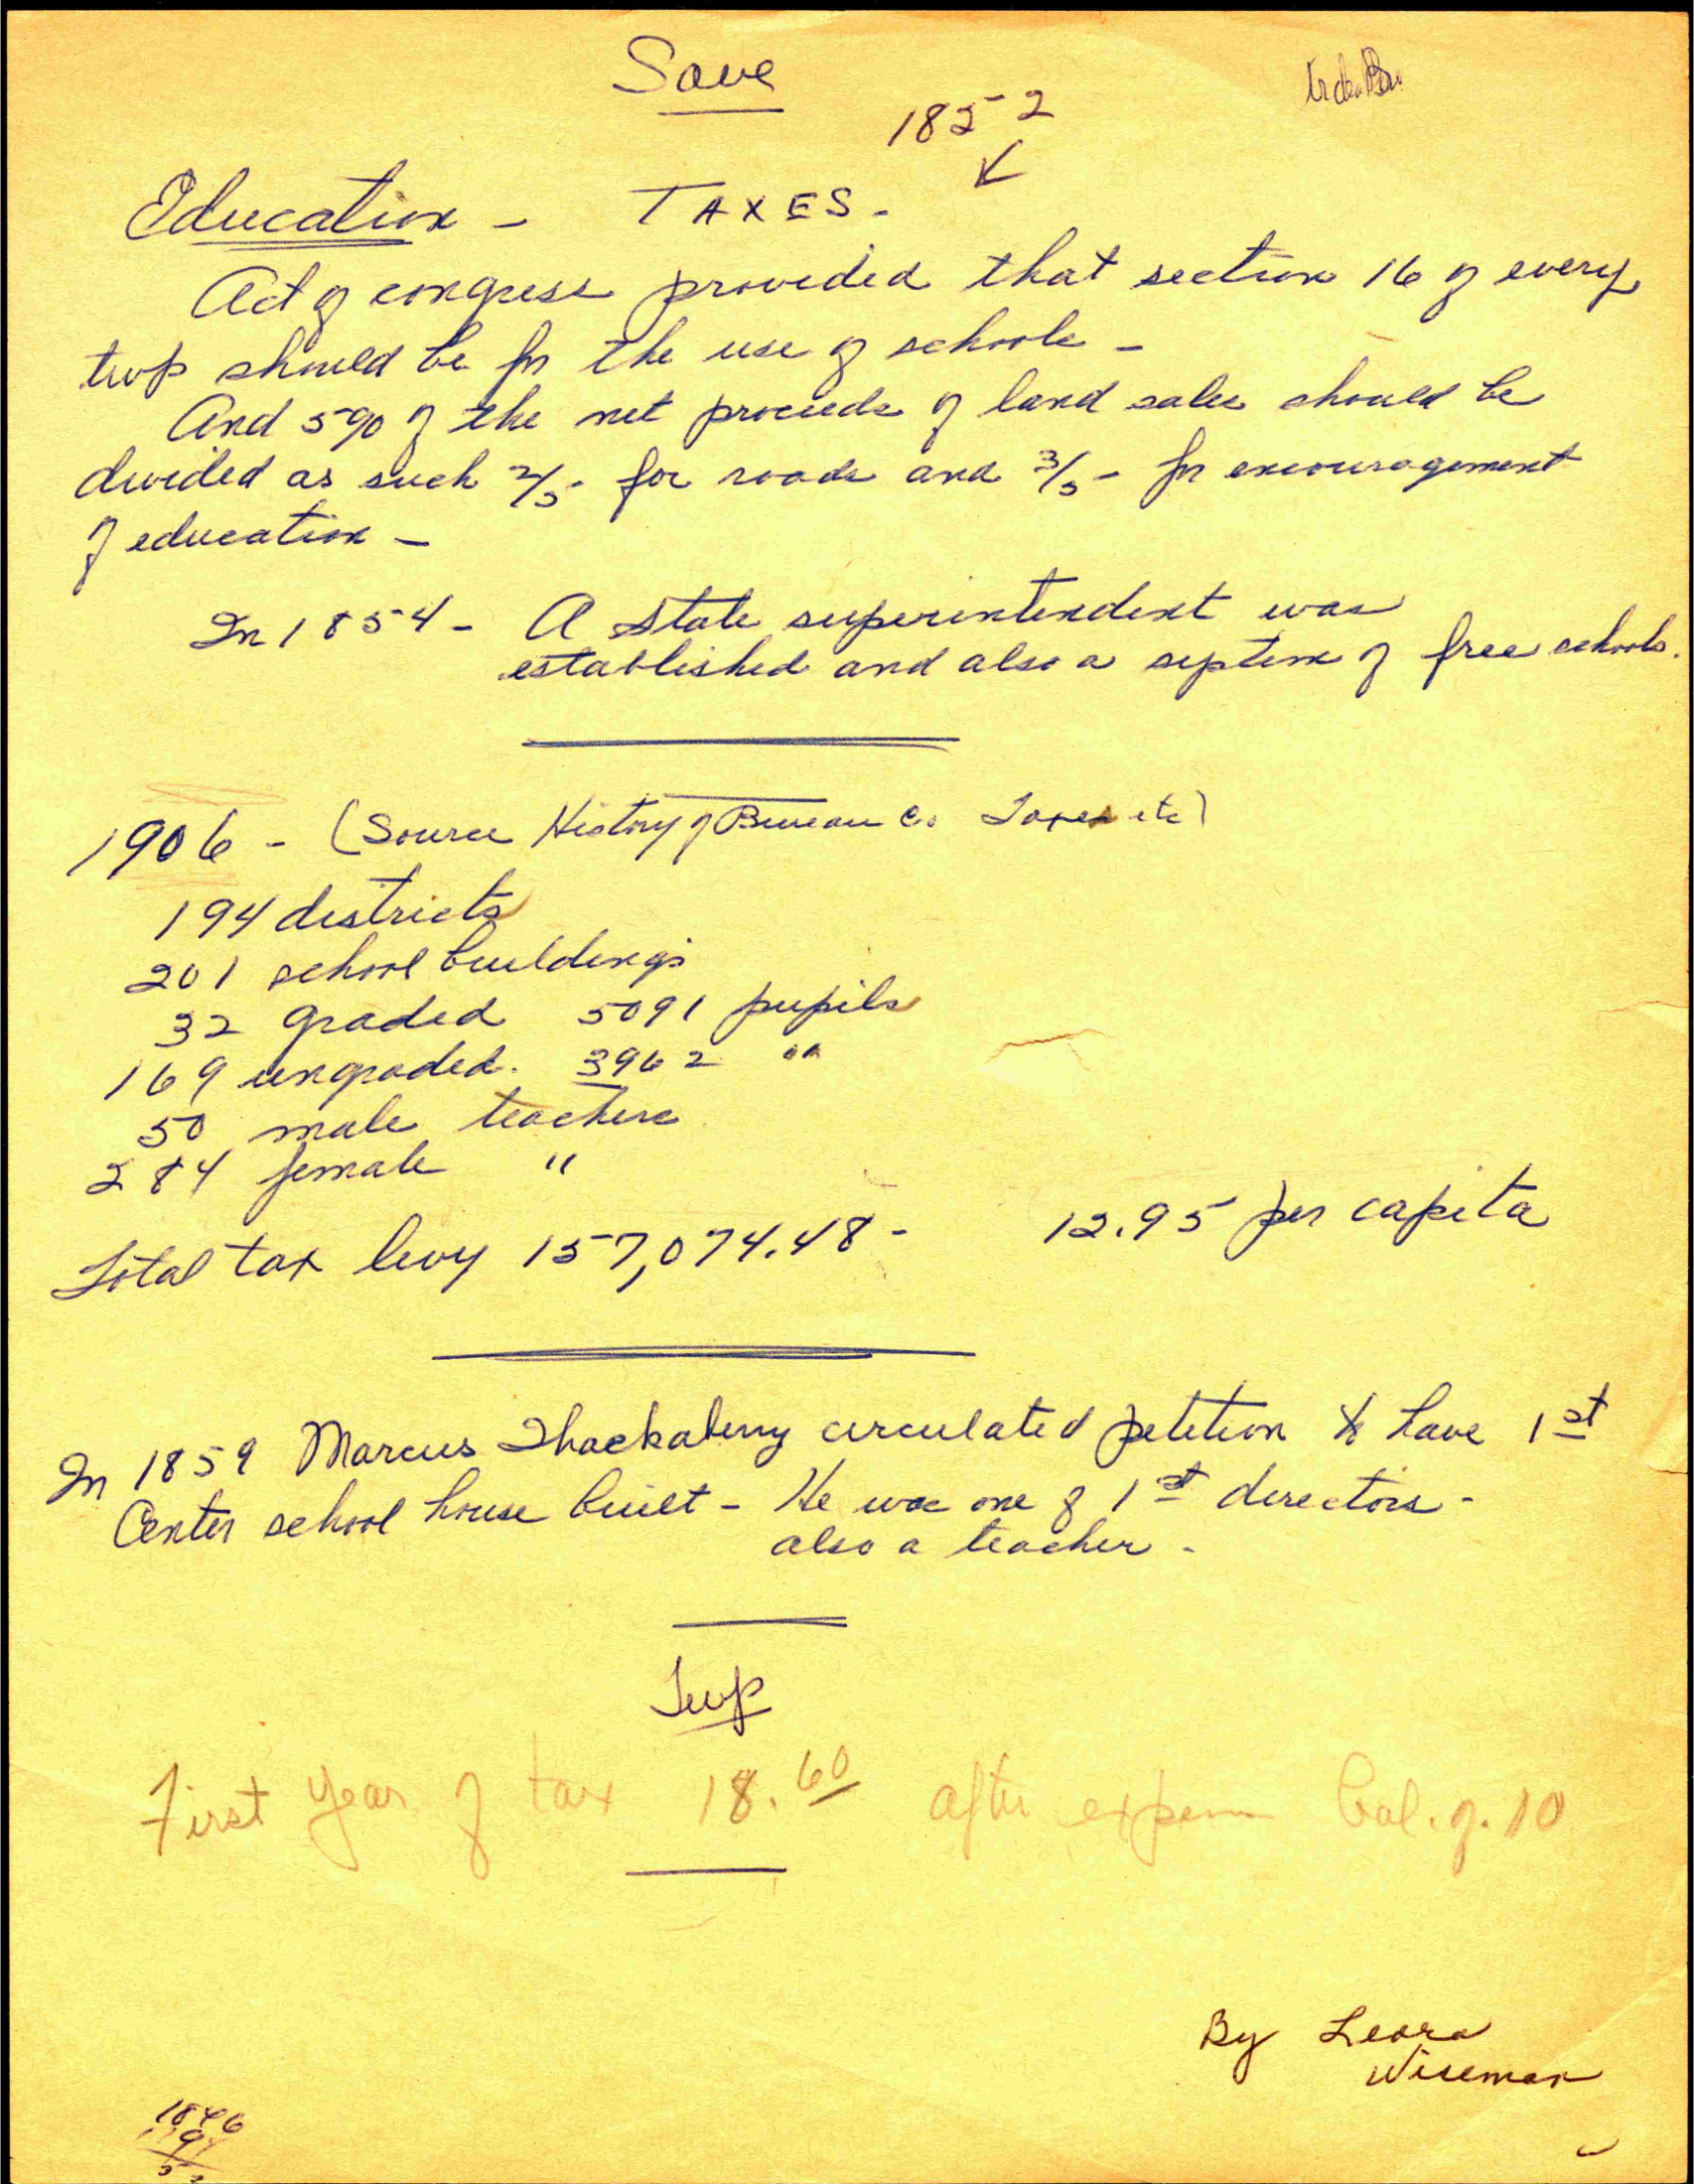 Save
1852
Education - TAXES.
Act of congress provided that section 16 of every
twp should be for the use of schools -
And 5% of the net proceeds of land sales should be
divided as such 2/5 - for roads and 3/5 - for encouragement
of education -
In 1854 - A state superintendent was
established and also a system of free schools.
1906 - (Source History of Bureau Co Taxes etc)
194 districts
201 school buildings
32 graded 5091 pupils
169 ungraded. 3962 "
50 male teachers
284 female "
Total tax levy 157,074.48 - 12.95 per capita
In 1859 Marcus Shackaberry circulated petition to have 1st
Center school house built - He was one of 1st directors -
also a teacher -
Twp
First year of tax 18.60 after expen bal. of. 10
By Leora
Wiseman
1846